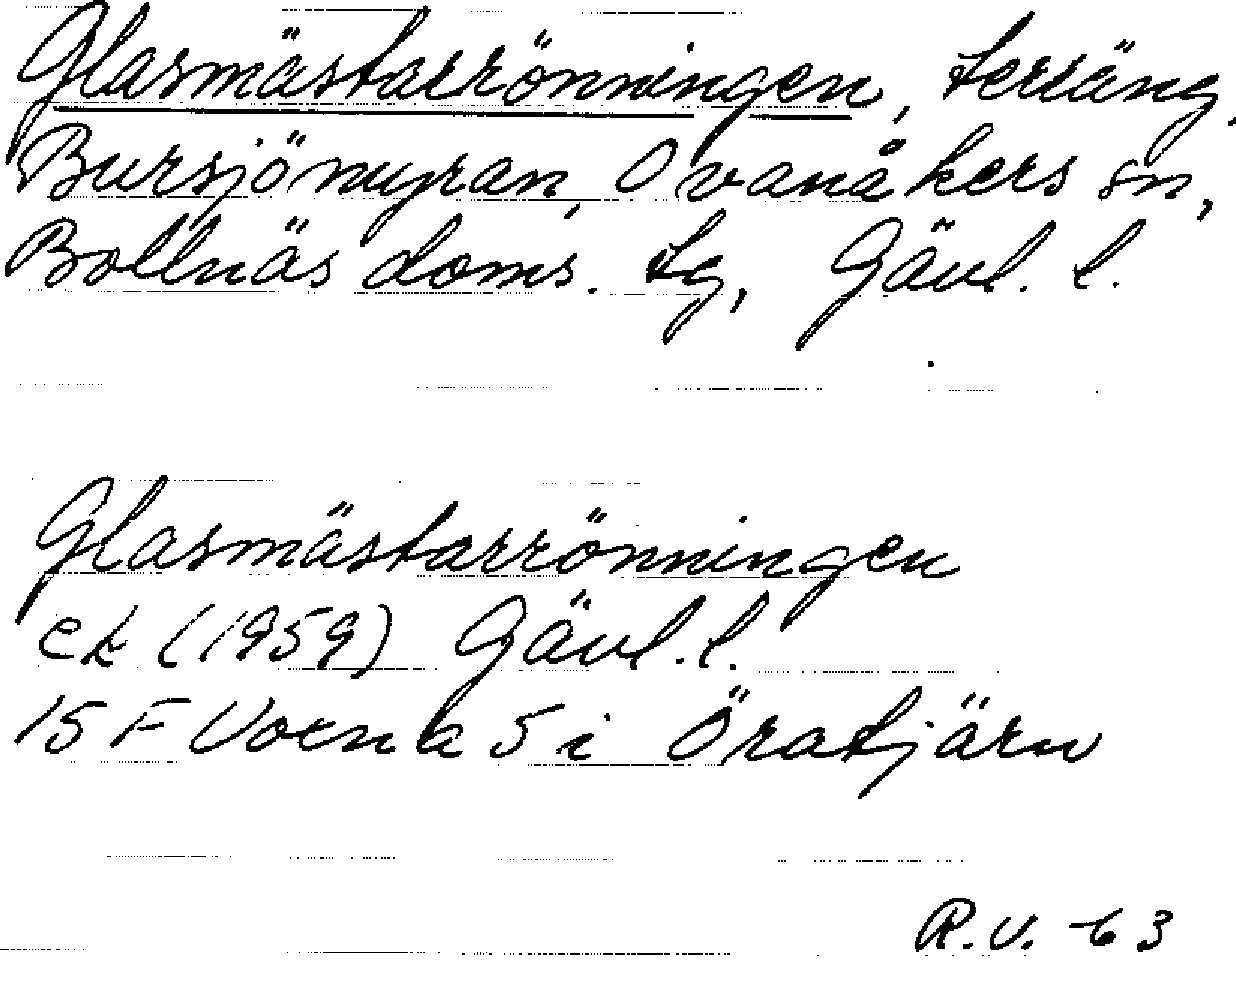 Glasmästarrönningen, terräng,
Bursjömyran, Ovanåkers sn,
Bollnäs doms. tg, Gävl. l.
Glasmästarrönningen
ek (1959) Gävl. l.
15 F Voxna 5 i Öratjärn
R.V. -63